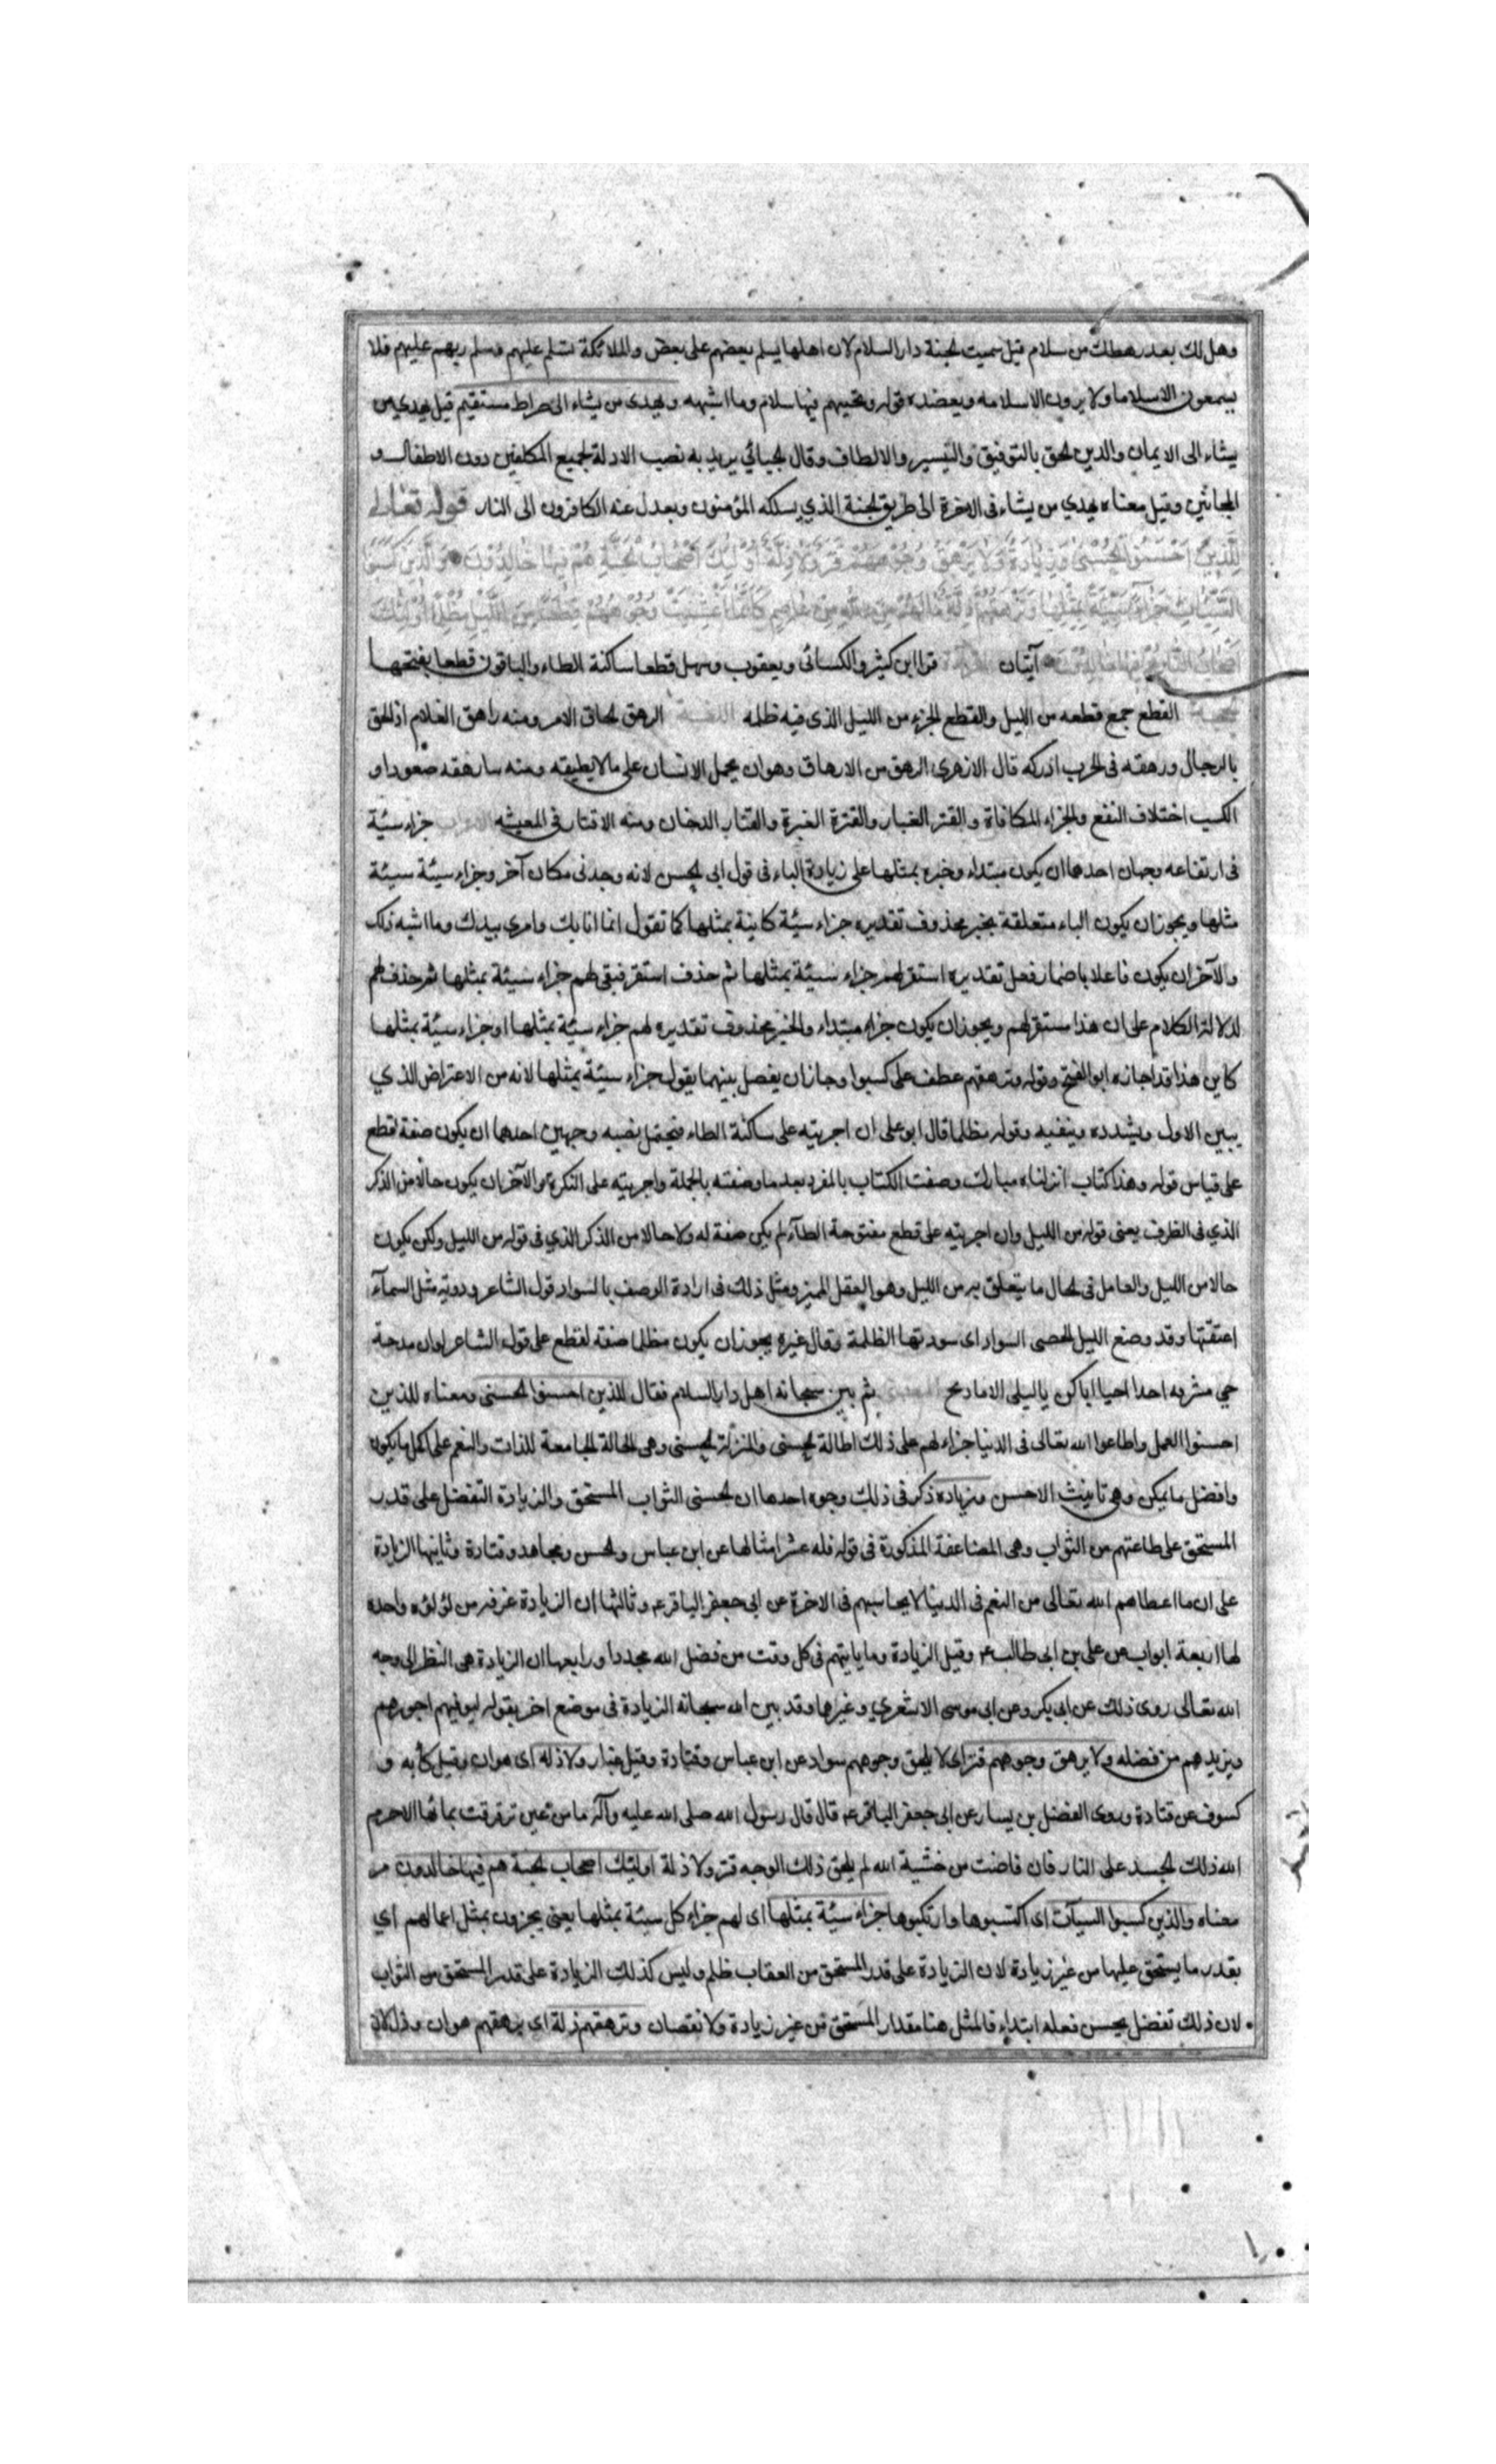 وهل لك بعد رهطك من سلام قيل سميت الجنة دار السلام لان اهلها يسلم بعضهم على بعض والملائكة تسلم عليهم ويسلم ربهم عليهم فلا
يسمعون الا سلاما ولا يرون الا سلامه ويعضده قوله وتحيتهم فيها سلام وما اشبهه ويهدى من يشاء الى صراط مستقيم قيل يهدي من
يشاء الى الايمان والدين الحق بالتوفيق والتيسير والالطاف وقال الجبائي يريد به نصب الادلة لجميع المكلفين دون الاطفال و
المجانين وقيل معناه يهدي من يشاء فى الاخرة الى طريق الجنة الذي يسلكه المؤمنون ويعدل عنه الكافرون الى النار قوله تعالى
لِلَّذِينَ اَحْسَنُوا الْحُسْنىٰ وَزِيَادَةٌ وَلَا يَرْهَقُ وُجُوهَهُمْ قَتَرٌ وَلَا ذِلَّةٌ اُولٰئِكَ اَصْحَابُ الْجَنَّةِ هُمْ فِيهَا خَالِدُونَ وَالَّذِينَ كَسَبُوا
السَّيِّئَاتِ جَزَاءُ سَيِّئَةٍ بِمِثْلِهَا وَتَرْهَقُهُمْ ذِلَّةٌ مَا لَهُمْ مِنَ اللهِ مِنْ عَاصِمٍ كَاَنَّمَا اُغْشِيَتْ وُجُوهُهُمْ قِطَعًا مِنَ اللَّيْلِ مُظْلِمًا اُولٰئِكَ
اَصْحَابُ النَّارِ هُمْ فِيهَا خَالِدُونَ آيتان القراءة قرا ابن كثير والكسائى ويعقوب وسهل قطعا ساكنة الطاء والباقون قطعا بفتحها
القطع جمع قطعه من الليل والقطع الجزء من الليل الذى فيه ظلمه اللغة الرهق لحاق الامر ومنه راهق الغلام اذا لحق
بالرجال ورهقه فى الحرب ادركه قال الازهرى الرهق من الارهاق وهو ان يحمل الانسان على ما لا يطيقه ومنه سارهقه صعودا و
الكسب اختلاف النفع والجزاء المكافاة والقتر الغبار والقترة الغبرة والقتار الدخان ومنه الاقتار فى المعيشه الاعراب جزاء سيئة
فى ارتفاعه وجهان احدهما ان يكون مبتداء وخبره بمثلها على زيادة الباء فى قول ابى الحسن لانه وجد فى مكان آخر وجزاء سيئة سيئة
مثلها ويجوز ان يكون الباء متعلقة بخبر محذوف تقديره جزاء سيئة كاينة بمثلها كما تقول انما انا بك وامرى بيدك وما اشبه ذلك
والآخر ان يكون فاعلا باضمار فعل تقديره استقر لهم جزاء سيئة بمثلها ثم حذف استقر فبقى لهم جزاء سيئة بمثلها ثم حذف لهم
لدلالة الكلام على ان هذا مستقر لهم ويجوز ان يكون جزاء مبتداء والخبر محذوف تقديره لهم جزاء سيئة بمثلها او جزاء سيئة بمثلها
كاين هذا قد اجازه ابو الفتح وقوله وترهقهم عطف على كسبوا وجاز ان يفصل بينهما بقوله جزاء سيئة بمثلها لانه من الاعتراض الذي
يبين الاول ويشدده ويثنيه وقوله مظلما قال ابو على ان اجريته على ساكنة الطاء فيحتمل نصبه وجهين احدهما ان يكون صفة لقطع
على قياس قوله وهذا كتاب انزلناه مبارك وصفت الكتاب بالمفرد بعد ما وصفته بالجملة واجريته على النكرة والآخر ان يكون حالا من الذكر
الذي فى الظرف يعنى قوله من الليل وان اجريته على قطع مفتوحة الطاء لم يكن صفة له ولا حالا من الذكر الذي فى قوله من الليل ولكن يكون
حالا من الليل والعامل فى الحال ما يتعلق به من الليل وهو الفعل المميز ومثل ذلك فى ارادة الوصف بالسواد قول الشاعر ودوية مثل السماء
اعتقتها وقد وضع الليل الحصى السواد اى سودتها الظلمة وقال غيره يجوز ان يكون مظلما صفه لقطع على قول الشاعر لو ان مدحة
حي مشره احدا احيا اباكن يا ليلى الاماديح المعنى ثم بين سبحانه اهل دار السلام فقال للذين احسنوا الحسنى ومعناه للذين
احسنوا العمل واطاعوا الله تعالى فى الدنيا جزاء لهم على ذلك الحالة الحسنى والمنزلة الحسنى وهى الحالة الجامعة للذات والنعم على اكمل ما يكون
وافضل ما يمكن وهى تانيث الاحسن وزياده ذكر فى ذلك وجوه احدها ان الحسنى الثواب المستحق والزيادة التفضل على قدر
المستحق على طاعتهم من الثواب وهى المضاعفة المذكورة فى قوله فله عشر امثالها عن ابن عباس والحسن ومجاهد وقتادة وثانيها الزيادة
على ان ما اعطاهم الله تعالى من النعم فى الدنيا لا يحاسبهم فى الاخرة عن ابى جعفر الباقر ع وثالثها ان الزيادة غرفه من لؤلؤه واحده
لها اربعة ابواب عن على بن ابى طالب ع وقيل الزيادة وما ياتيهم فى كل وقت من فضل الله مجددا ورابعها ان الزيادة هى النظر الى وجه
الله تعالى روى ذلك عن ابى بكر وعن ابى موسى الاشعري وغيرهما وقد بين الله سبحانه الزيادة فى موضع اخر بقوله ليوفيهم اجورهم
ويزيدهم من فضله ولا يرهق وجوههم قتر اى لا يلحق وجوههم سواد عن ابن عباس وقتادة وقيل غبار ولا ذله اى هوان وقيل كأبه و
كسوف عن قتادة وروى الفضل بن يسار عن ابى جعفر الباقر ع قال قال رسول الله صلى الله عليه وآله ما من عين ترقرقت بمائها الا حرم
الله ذلك الجسد على النار فان فاضت من خشية الله لم يلحق ذلك الوجه قتر ولا ذلة اولئك اصحاب الجنة هم فيها خالدون مر
معناه والذين كسبوا السيآت اى اكتسبوها وارتكبوها جزاء سيئة بمثلها اى لهم جزاء كل سيئة بمثلها يعنى يجزون بمثل اعمالهم اي
بقدر ما يستحق عليها من غير زيادة لان الزيادة على قدر المستحق من العقاب ظلم وليس كذلك الزيادة على قدر المستحق من الثواب
لان ذلك تفضل يحسن فعله ابتداء فالمثل هنا مقدار المستحق من غير زيادة ولا نقصان وترهقهم ذلة اى يرهقهم هوان وذل لان